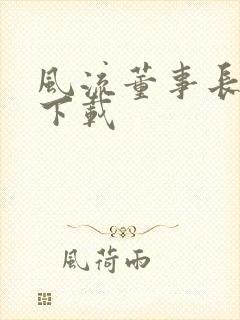 風流董事長
下載
風荷雨